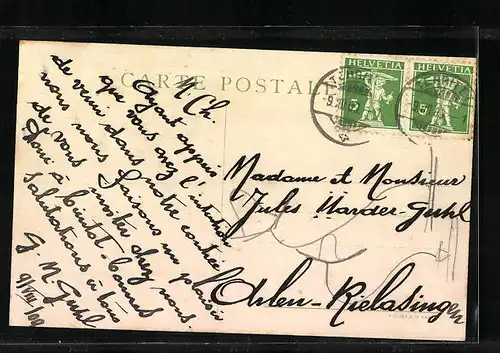 CARTE POSTALE
HELVETIA
HELVETIA
5
5
M Ch.
Ayant appris
que vous avez l'intention
de venir dans notre contrée
nous nous faisons un plaisir
de vous inviter chez nous.
Donc à bientôt. bonnes
salutations à tous
G. M. Guhl
9/VII/09
Madame et Monsieur
Jules Harder-Guhl
Arlen-Rielasingen